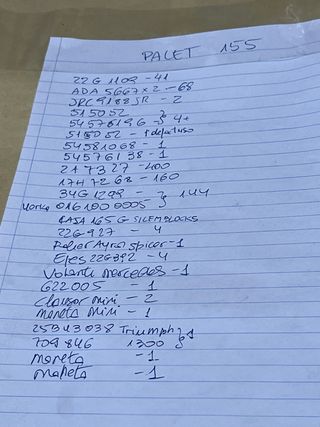 PALET 155
22G 1109 - 41
ADA 5667 x 2 - 68
JRC 9188 JR - 2
515052
54578196 } 4+
515052 - 1 defectuso
54581068 - 1
54576138 - 1
217327 - 400
17H 7268 - 160
34G 1299 - } 144
0161000005
CAJA 165 G SILEMBLOCKS
22G 927 - 4
Spicer - 1
Ejes 22G392 - 4
Volante mercedes - 1
G22005 - 1
Clausor mini - 2
Maneta mini - 1
25943038 Triumph } 1
709846 1300
Maneta - 1
Maneta - 1